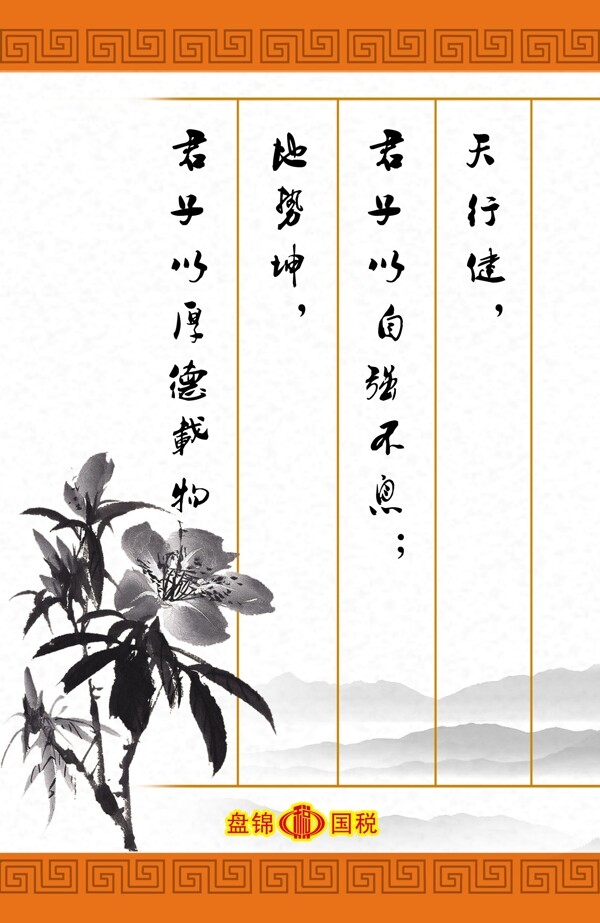 天行健，
君子以自强不息；
地势坤，
君子以厚德載物
盘锦 税 国税